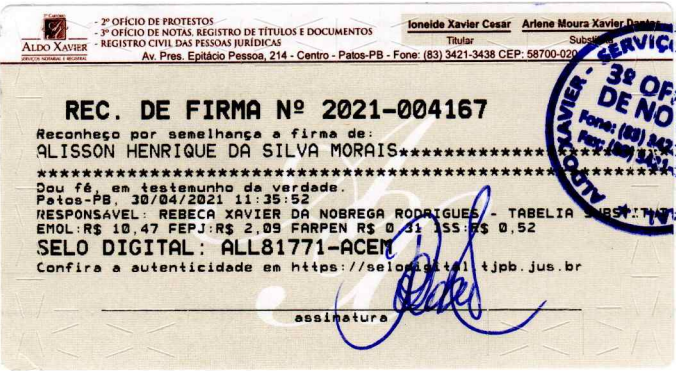 ALDO XAVIER
SERVIÇOS NOTARIAL E REGISTRAL
- 2º OFÍCIO DE PROTESTOS
- 3º OFÍCIO DE NOTAS, REGISTRO DE TÍTULOS E DOCUMENTOS
- REGISTRO CIVIL DAS PESSOAS JURÍDICAS
Ioneide Xavier Cesar Arlene Moura Xavier Dantas
Titular
Av. Pres. Epitácio Pessoa, 214 - Centro - Patos-PB - Fone: (83) 3421-3438 CEP: 58700-020
REC. DE FIRMA Nº 2021-004167
Reconheço por semelhança a firma de:
ALISSON HENRIQUE DA SILVA MORAIS
Dou fé, em testemunho da verdade.
Patos-PB, 30/04/2021 11:35:52
RESPONSÁVEL: REBECA XAVIER DA NOBREGA RODRIGUES - TABELIA SUBSTITUT
EMOL:R$ 10,47 FEPJ:R$ 2,09 FARPEN R$ 0,31 ISS:R$ 0,52
SELO DIGITAL: ALL81771-ACEM
Confira a autenticidade em https://selodigital.tjpb.jus.br
assinatura
ALDO XAVIER - SERVIÇO
3º OF
DE NO
Fone: (83) 342
Fax: (83) 3421